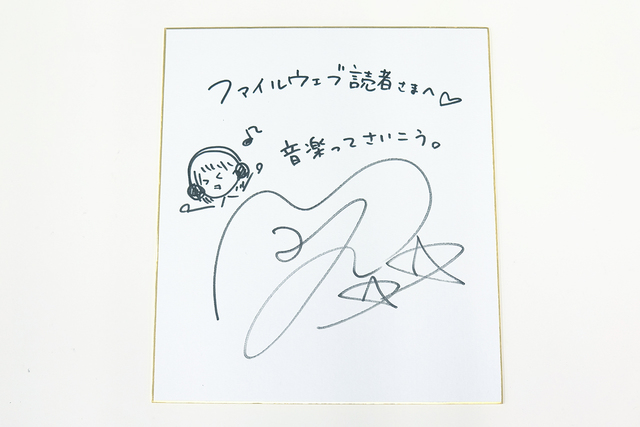 ファイルウェブ読者さまへ♡
音楽ってさいこう。